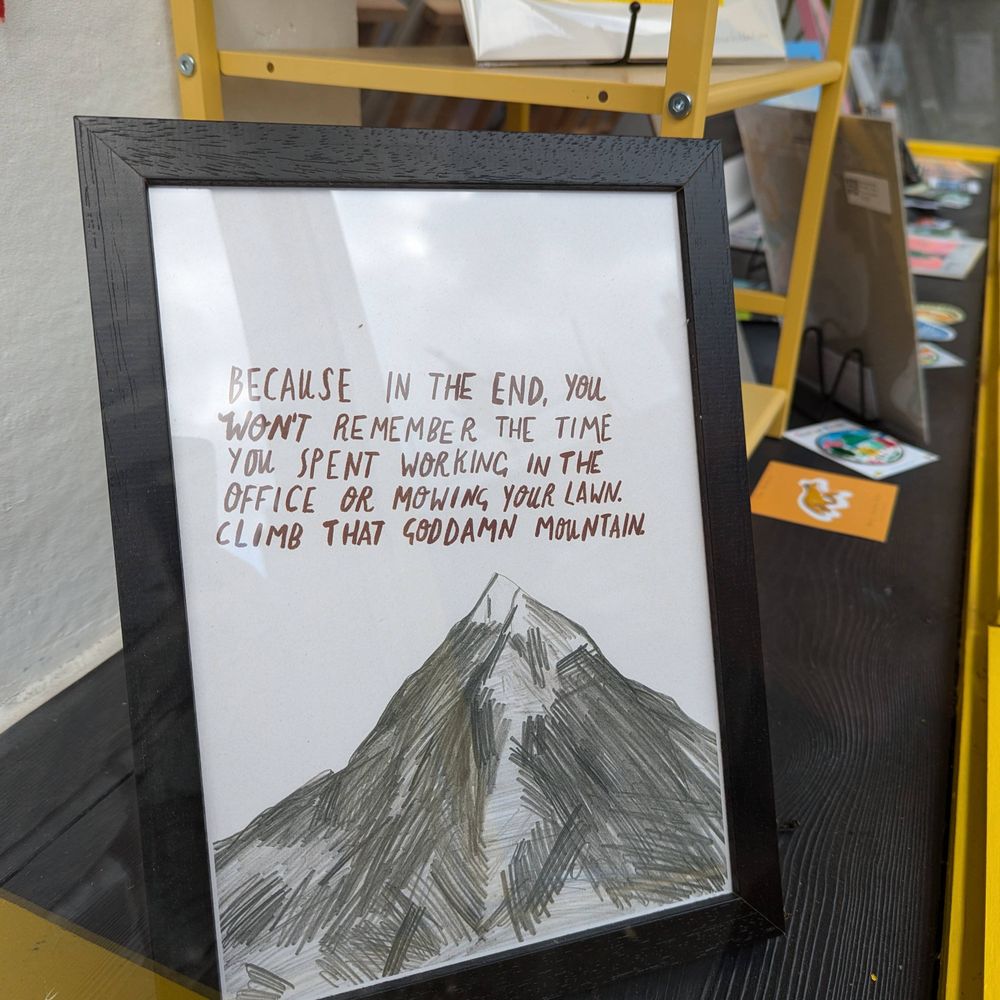 BECAUSE IN THE END, YOU
WON'T REMEMBER THE TIME
YOU SPENT WORKING IN THE
OFFICE OR MOWING YOUR LAWN.
CLIMB THAT GODDAMN MOUNTAIN.